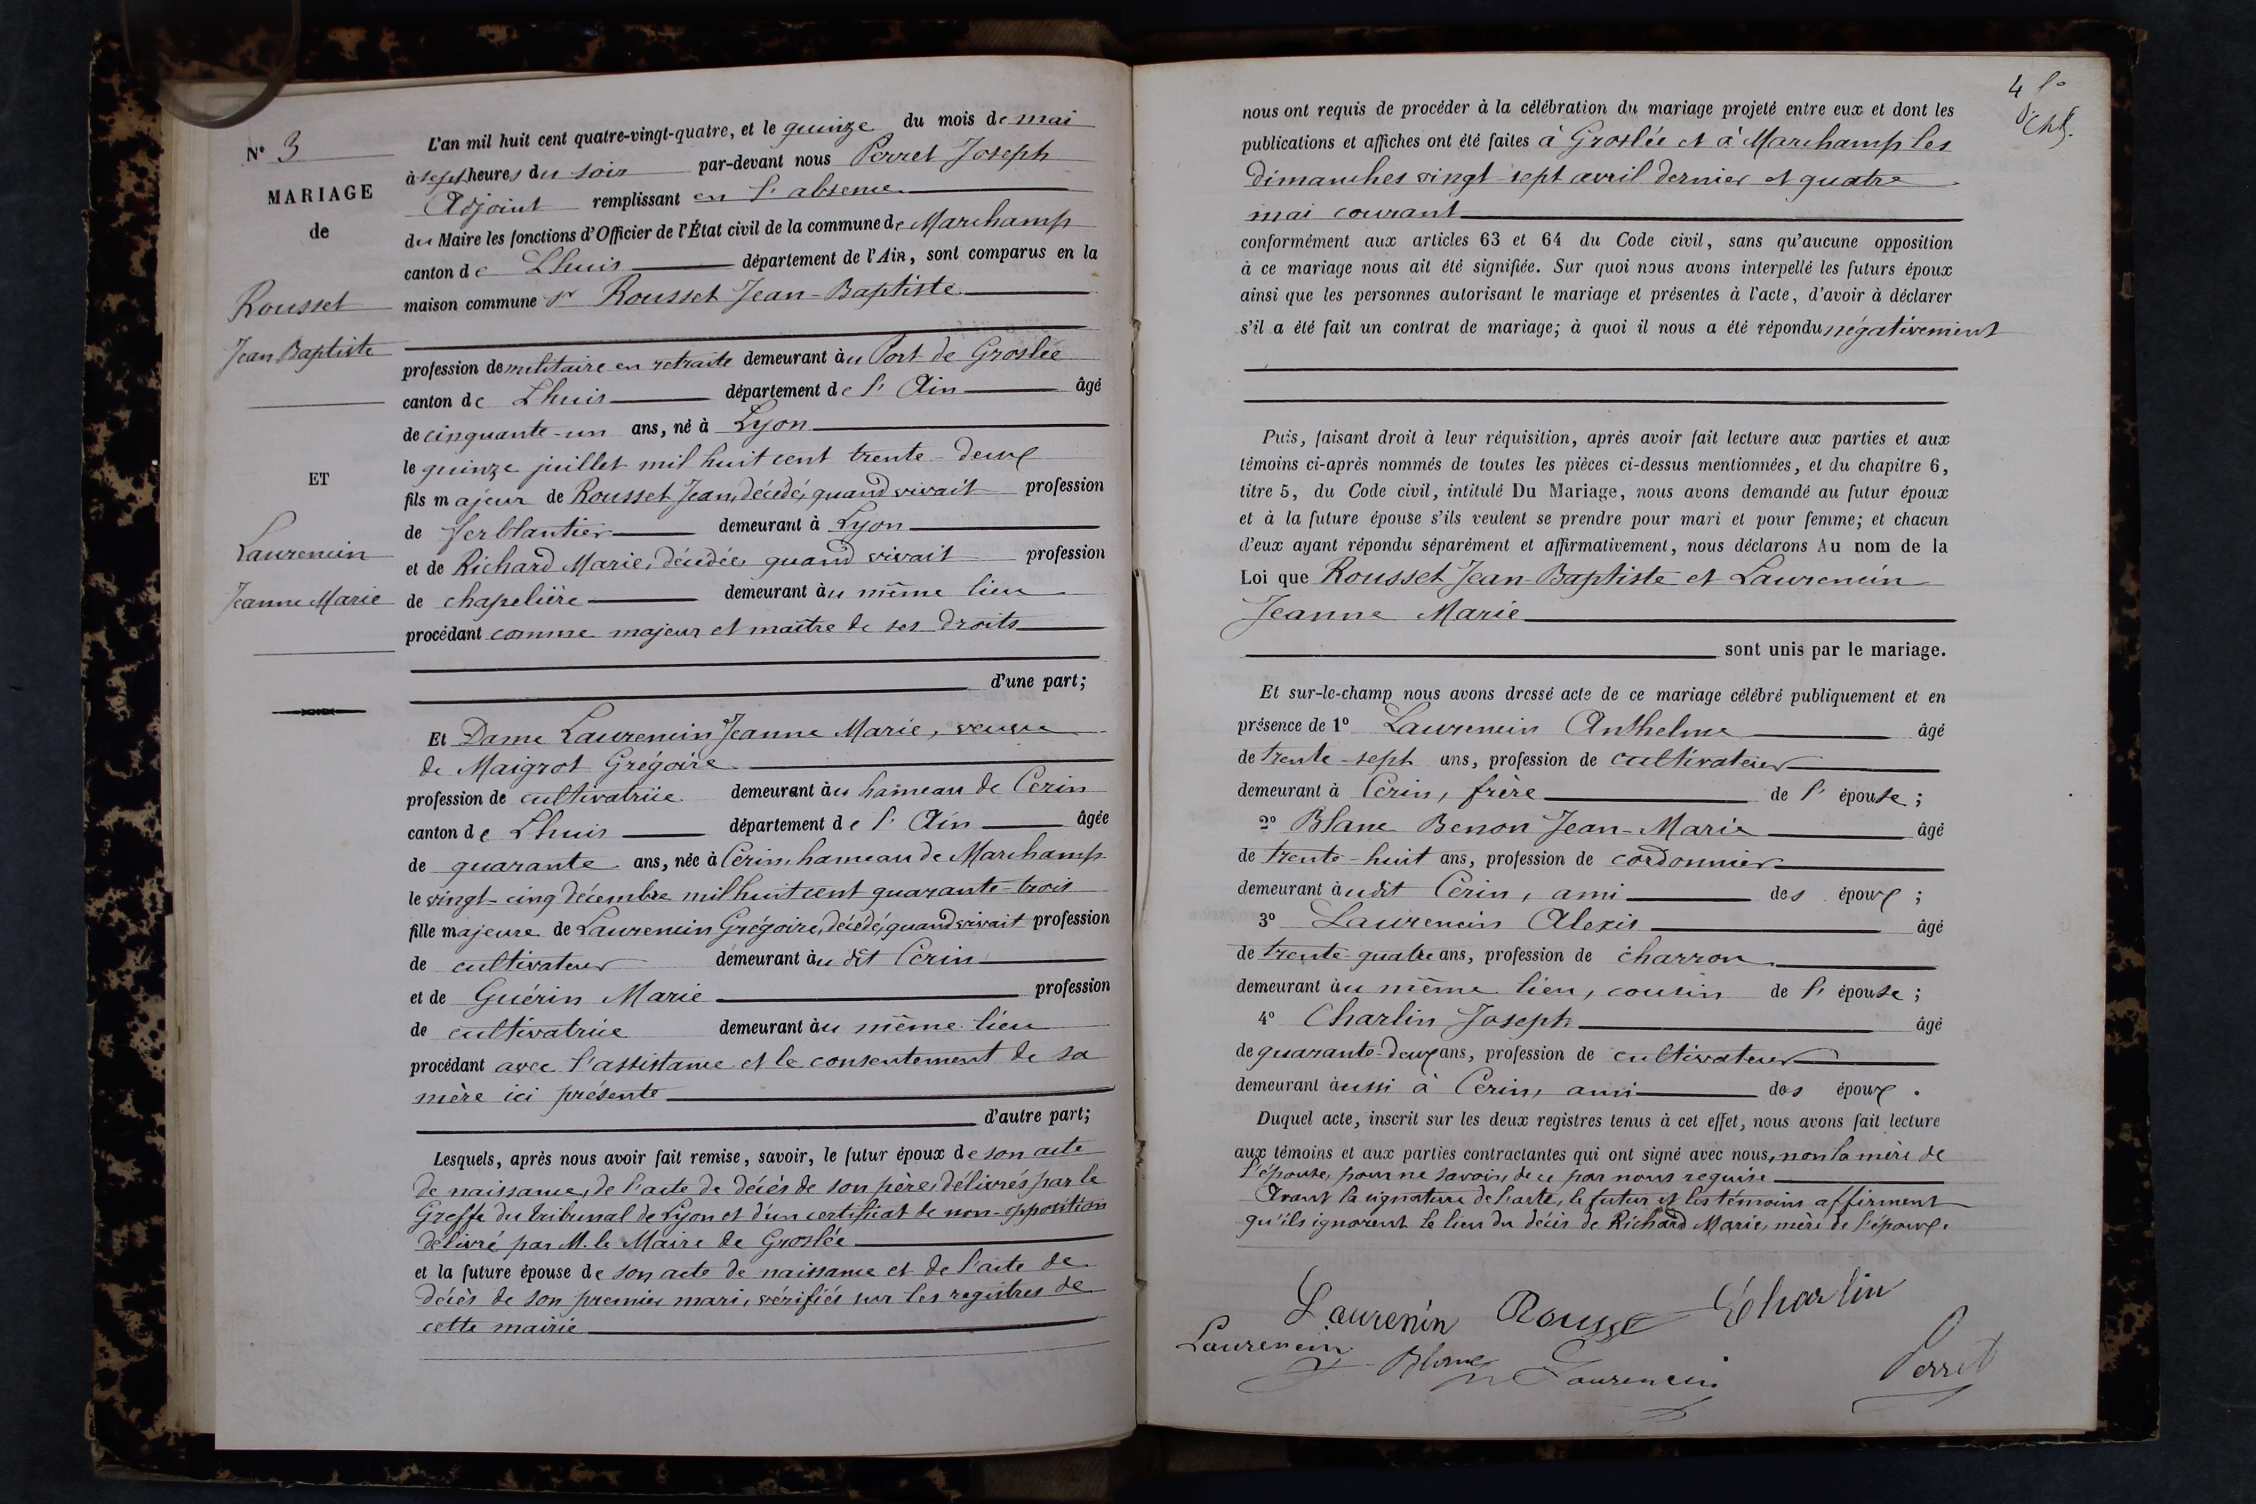 N° 3
MARIAGE
de
Rousset
Jean Baptiste
ET
Laurencin
Jeanne Marie
L'an mil huit cent quatre-vingt-quatre, et le quinze du mois de mai
à sept heures du soir par-devant nous Perret Joseph
Adjoint remplissant en l'absence
du Maire les fonctions d'Officier de l'État civil de la commune de Marchamp
canton de Lhuis département de l'AIN, sont comparus en la
maison commune sr Rousset Jean-Baptiste
profession de militaire en retraite demeurant àu Port de Groslée
canton de Lhuis département de l'Ain âgé
de cinquante-un ans, né à Lyon
le quinze juillet mil huit cent trente-deux
fils majeur de Rousset Jean, décédé, quand vivait profession
de ferblantier demeurant à Lyon
et de Richard Marie, décédée quand vivait profession
de chapelière demeurant àu même lieu
procédant comme majeur et maître de ses droits
d'une part;
Et Dame Laurencin Jeanne Marie, veuve
de Maigrot Grégoire
profession de cultivatrice demeurant àu hameau de Cerin
canton de Lhuis département de l'Ain âgée
de quarante ans, née à Cerin, hameau de Marchamp
le vingt-cinq décembre mil huit cent quarante-trois
fille majeure de Laurencin Grégoire, décédé, quand vivait profession
de cultivateur demeurant àu dit Cerin
et de Guérin Marie profession
de cultivatrice demeurant àu même lieu
procédant avec l'assistance et le consentement de sa
mère ici présente
d'autre part;
Lesquels, après nous avoir fait remise, savoir, le futur époux de son acte
de naissance, de l'acte de décès de son père, délivrés par le
Greffe du tribunal de Lyon et d'un certificat de non-opposition
délivré par M. le Maire de Groslée
et la future épouse de son acte de naissance et de l'acte de
décès de son premier mari, vérifiés sur les registres de
cette mairie
4
nous ont requis de procéder à la célébration du mariage projeté entre eux et dont les
publications et affiches ont été faites à Groslée et à Marchamp les
dimanches vingt-sept avril dernier et quatre
mai courant
conformément aux articles 63 et 64 du Code civil, sans qu'aucune opposition
à ce mariage nous ait été signifiée. Sur quoi nous avons interpellé les futurs époux
ainsi que les personnes autorisant le mariage et présentes à l'acte, d'avoir à déclarer
s'il a été fait un contrat de mariage; à quoi il nous a été répondu négativement
Puis, faisant droit à leur réquisition, après avoir fait lecture aux parties et aux
témoins ci-après nommés de toutes les pièces ci-dessus mentionnées, et du chapitre 6,
titre 5, du Code civil, intitulé Du Mariage, nous avons demandé au futur époux
et à la future épouse s'ils veulent se prendre pour mari et pour femme; et chacun
d'eux ayant répondu séparément et affirmativement, nous déclarons Au nom de la
Loi que Rousset Jean-Baptiste et Laurencin
Jeanne Marie
sont unis par le mariage.
Et sur-le-champ nous avons dressé acte de ce mariage célébré publiquement et en
présence de 1° Laurencin Anthelme âgé
de trente-sept ans, profession de cultivateur
demeurant à Cerin, frère de l'épouse;
2° Blanc Benon Jean-Marie âgé
de trente-huit ans, profession de cordonnier
demeurant àudit Cerin, ami des époux;
3° Laurencin Alexis âgé
de trente-quatre ans, profession de charron
demeurant àu même lieu, cousin de l'épouse;
4° Charlin Joseph âgé
de quarante-deux ans, profession de cultivateur
demeurant àussi à Cerin, ami des époux.
Duquel acte, inscrit sur les deux registres tenus à cet effet, nous avons fait lecture
aux témoins et aux parties contractantes qui ont signé avec nous, non la mère de
l'épouse, pour ne savoir, de ce par nous requise
Avant la signature de l'acte, le futur et les témoins affirment
qu'ils ignorent le lieu du décès de Richard Marie, mère de l'époux.
Laurenin Rousset Charlin
Laurencin
Blanc Laurencin Perret